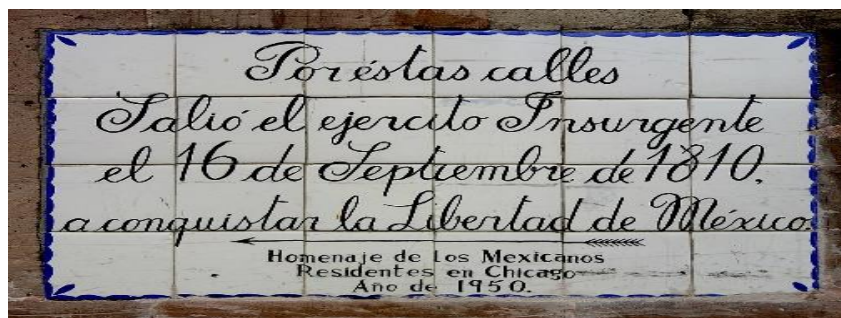 Por éstas calles
Salió el ejercito Insurgente
el 16 de Septiembre de 1810.
a conquistar la Libertad de México.
Homenaje de los Mexicanos
Residentes en Chicago
Año de 1950.